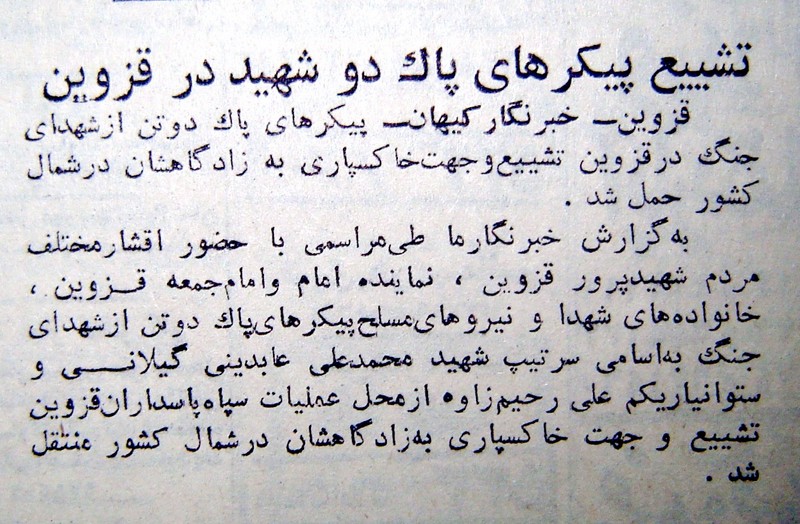 تشییع پیکرهای پاك دو شهید در قزوین
قزوین ــ خبرنگار کیهان ــ پیکرهای پاك دوتن ازشهدای
جنگ درقزوین تشییع‌وجهت‌خاکسپاری به زادگاهشان درشمال
کشور حمل شد .
به‌گزارش خبرنگارما طی‌مراسمی با حضور اقشارمختلف
مردم شهیدپرور قزوین ، نماینده امام وامام‌جمعه قـزوین ،
خانواده‌های شهدا و نیروهای‌مسلح‌پیکرهای‌پاك دوتن ازشهدای
جنگ به‌اسامی سرتیپ شهید محمدعلی عابدینی گیلانــی و
ستوانیاریکم علی رحیم‌زاوه ازمحل عملیات سپاه‌پاسداران‌قزوین
تشییع و جهت خاکسپاری به‌زادگاهشان درشمال کشور منتقل
شد .